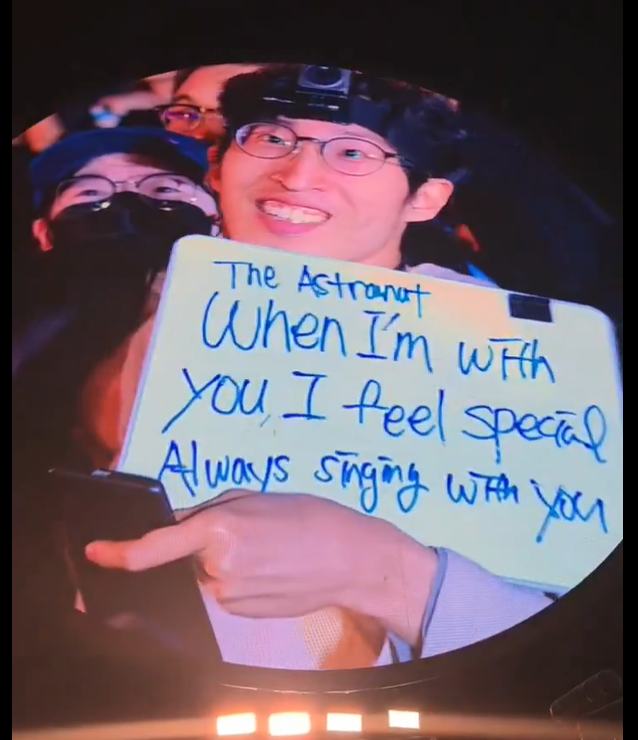 The Astranut
When I'm with
you, I feel special
Always singing with you